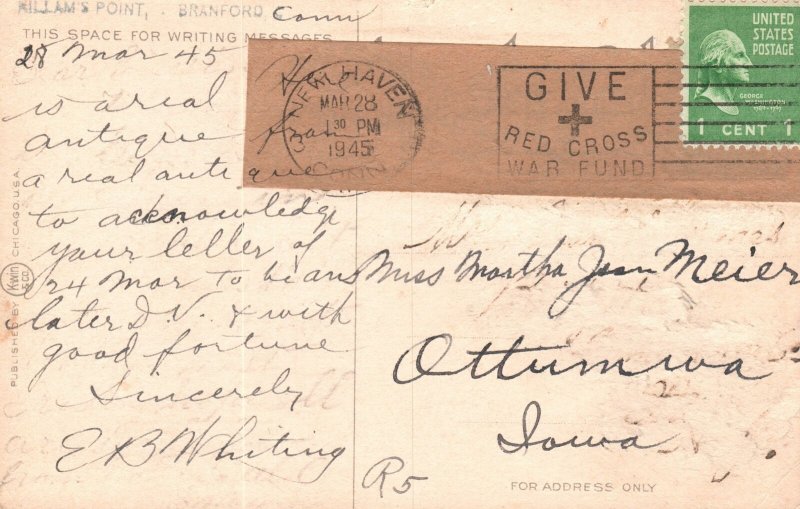 KILLAM'S POINT, BRANFORD Conn
THIS SPACE FOR WRITING MESSAGES
28 Mar 45
is a real
antique from
a real antique
to acknowledge
your letter of
24 Mar To be ans
later D.V. & with
good fortune
Sincerely
E B Whiting
PUBLISHED BY Kwin & CO. CHICAGO U.S.A.
NEW HAVEN
MAR 28
1 30 PM
1945
CONN
GIVE
RED CROSS
WAR FUND
UNITED
STATES
POSTAGE
GEORGE
WASHINGTON
1 CENT 1
Miss Martha Jean Meier
Ottumwa
Iowa
R5
FOR ADDRESS ONLY